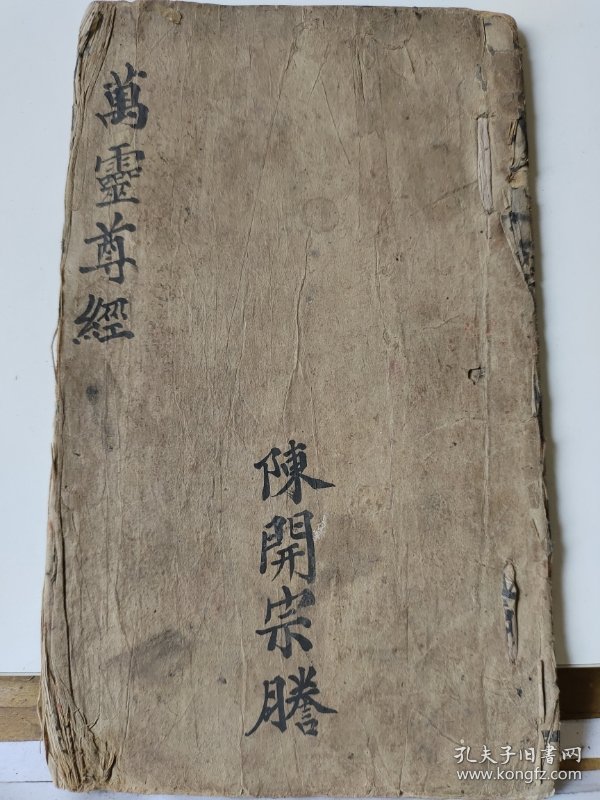 萬靈尊經
陳開宗謄
孔夫子旧書网
www.kongfz.com